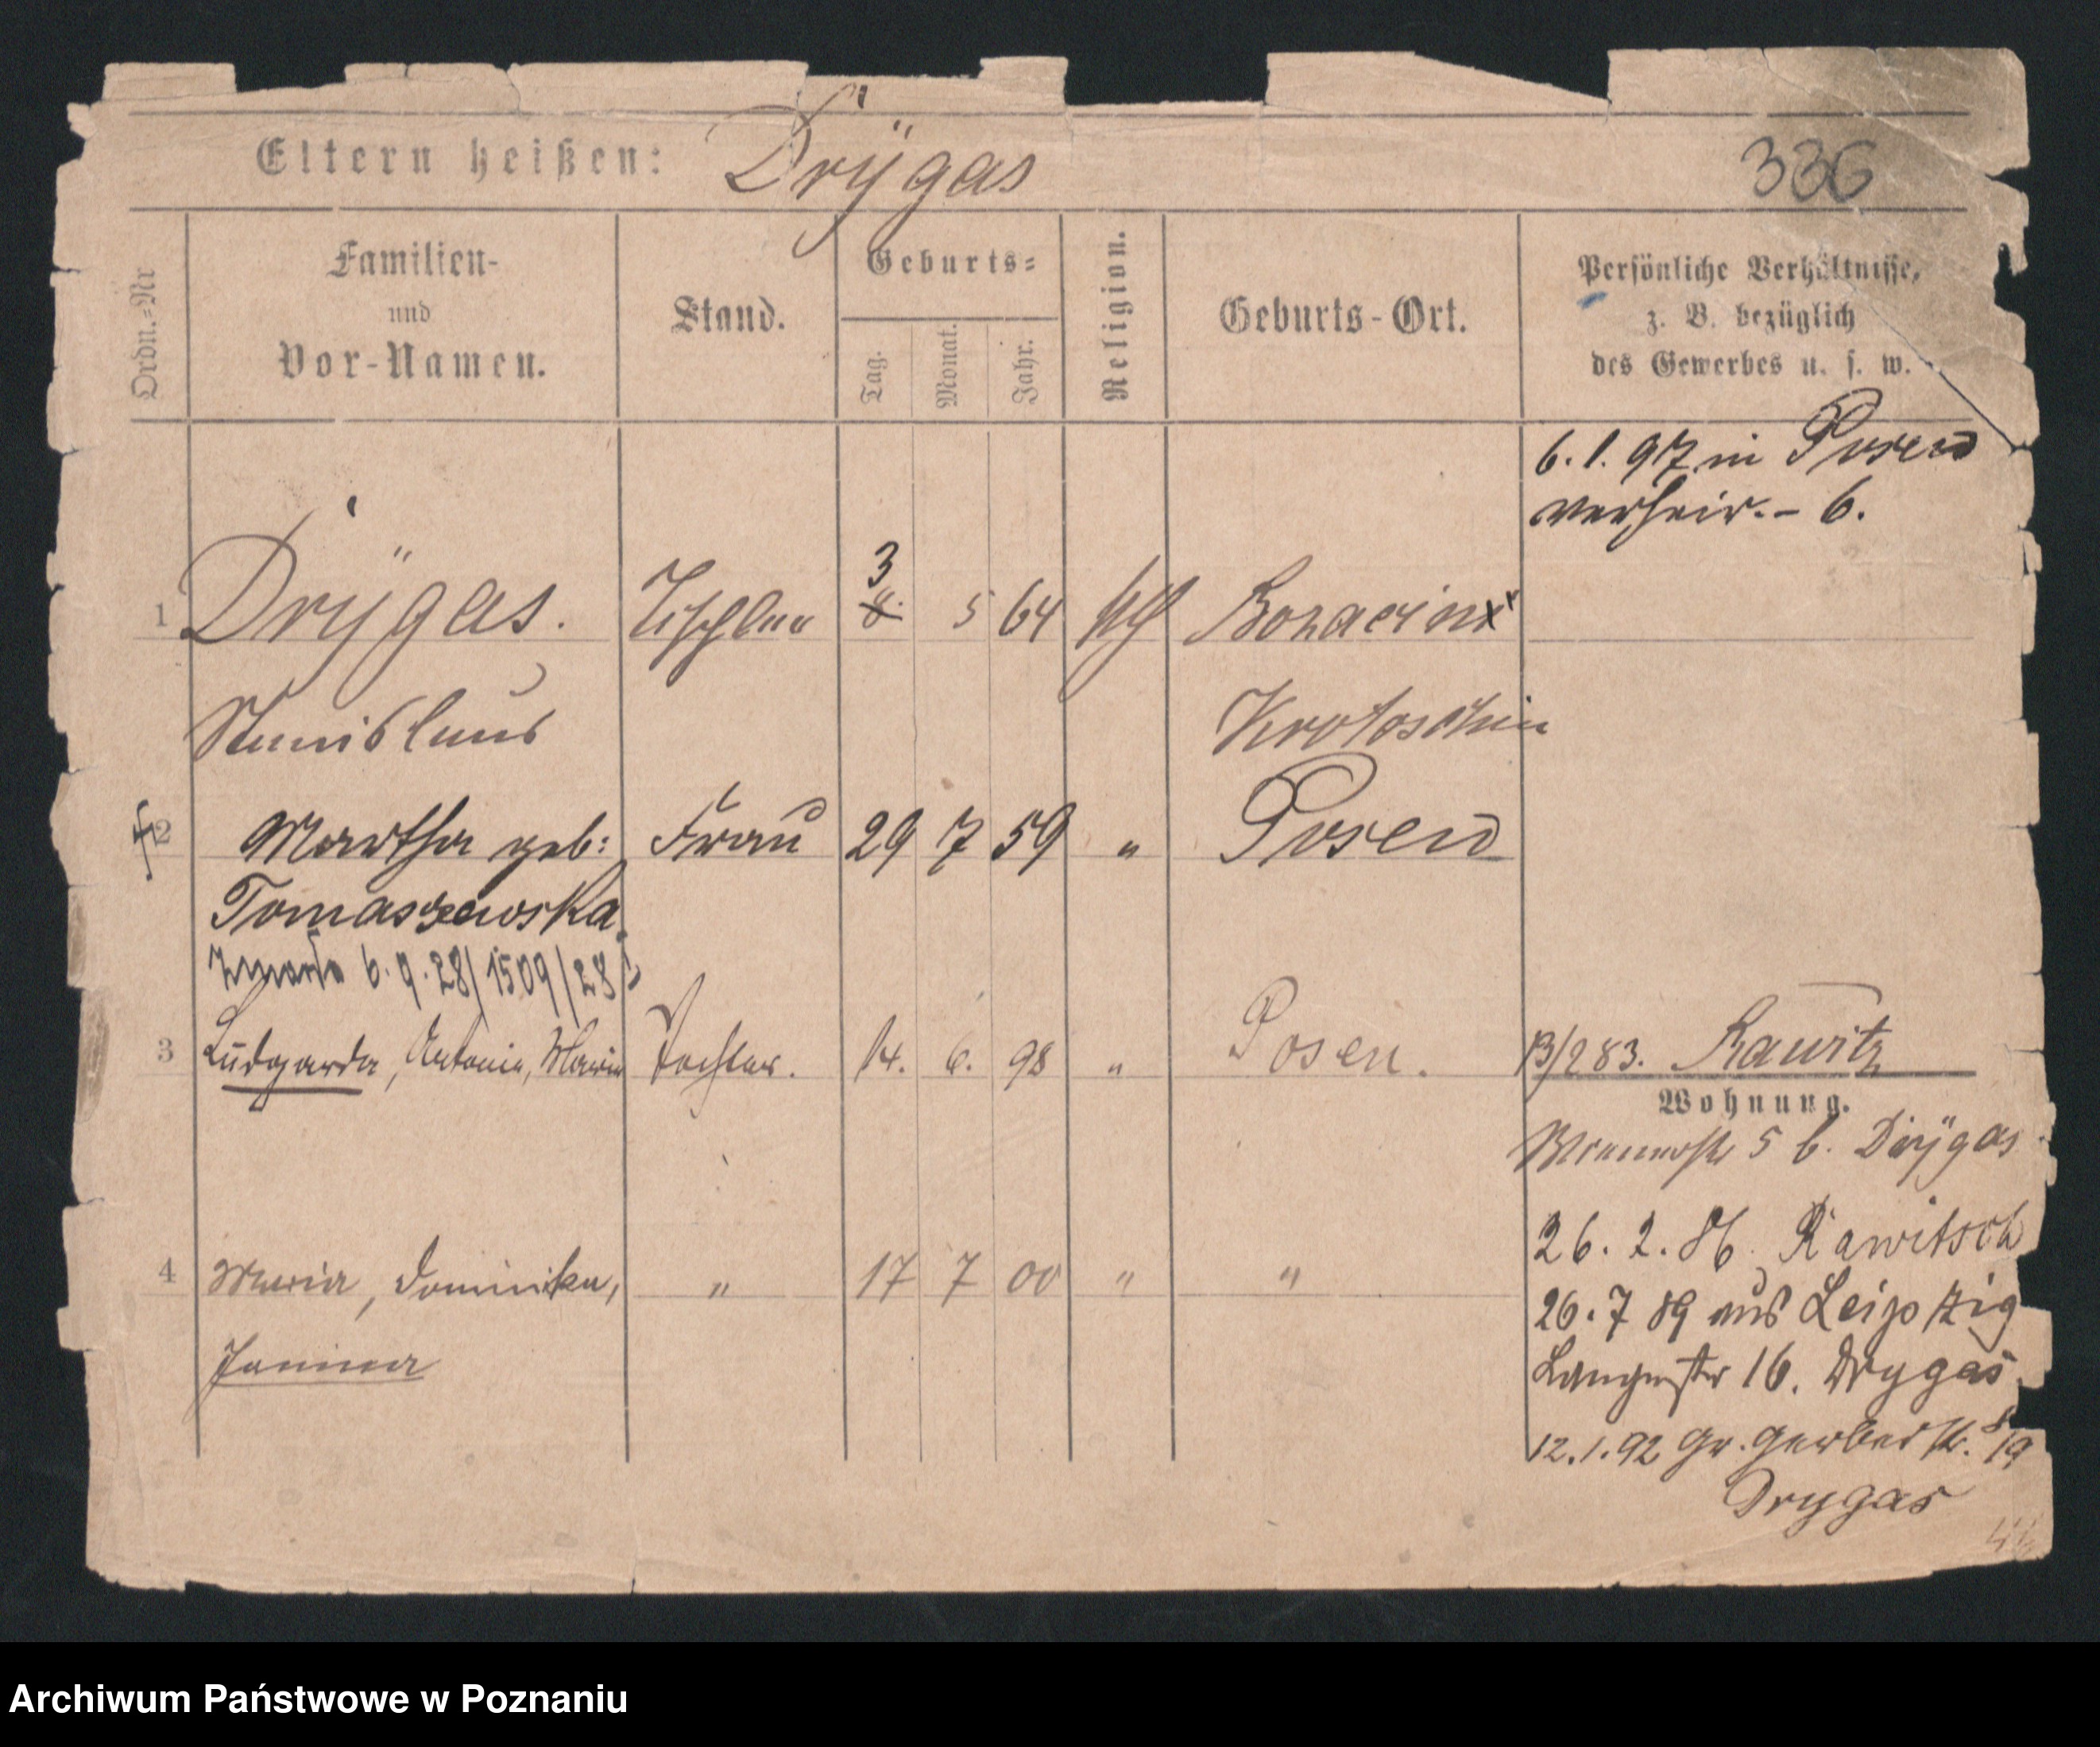 Eltern heißen: Drÿgas 336
Ordn.-Nr
Familien-
und
Vor-Namen.
Stand.
Geburts-
Tag.
Monat.
Jahr.
Religion.
Geburts-Ort.
Persönliche Verhältnisse,
z. B. bezüglich
des Gewerbes u. s. w.
6. 1. 97 in Posen
verheir. - 6.
1 Drÿgas. Tischler 3 5 64 kth
Stanislaus Krotoschin
2 Martha geb: Frau 29 7 59 " Posen
Tomaszewska
zmarła 6.9.28/1509/28
3 Ludgarda, Antonie, Maria Tochter. 14. 6. 98 " Posen. B/283. Rawitz
Wohnung.
5 b. Drÿgas
26. 2. 86 Rawitsch
26. 7 89 aus Leipzig
Langestr 16. Drygas
12. 1. 92 Gr. Gerberstr. 19
Drygas
4 Maria, Dominika, " 17 7 00 " "
Janina
Archiwum Państwowe w Poznaniu